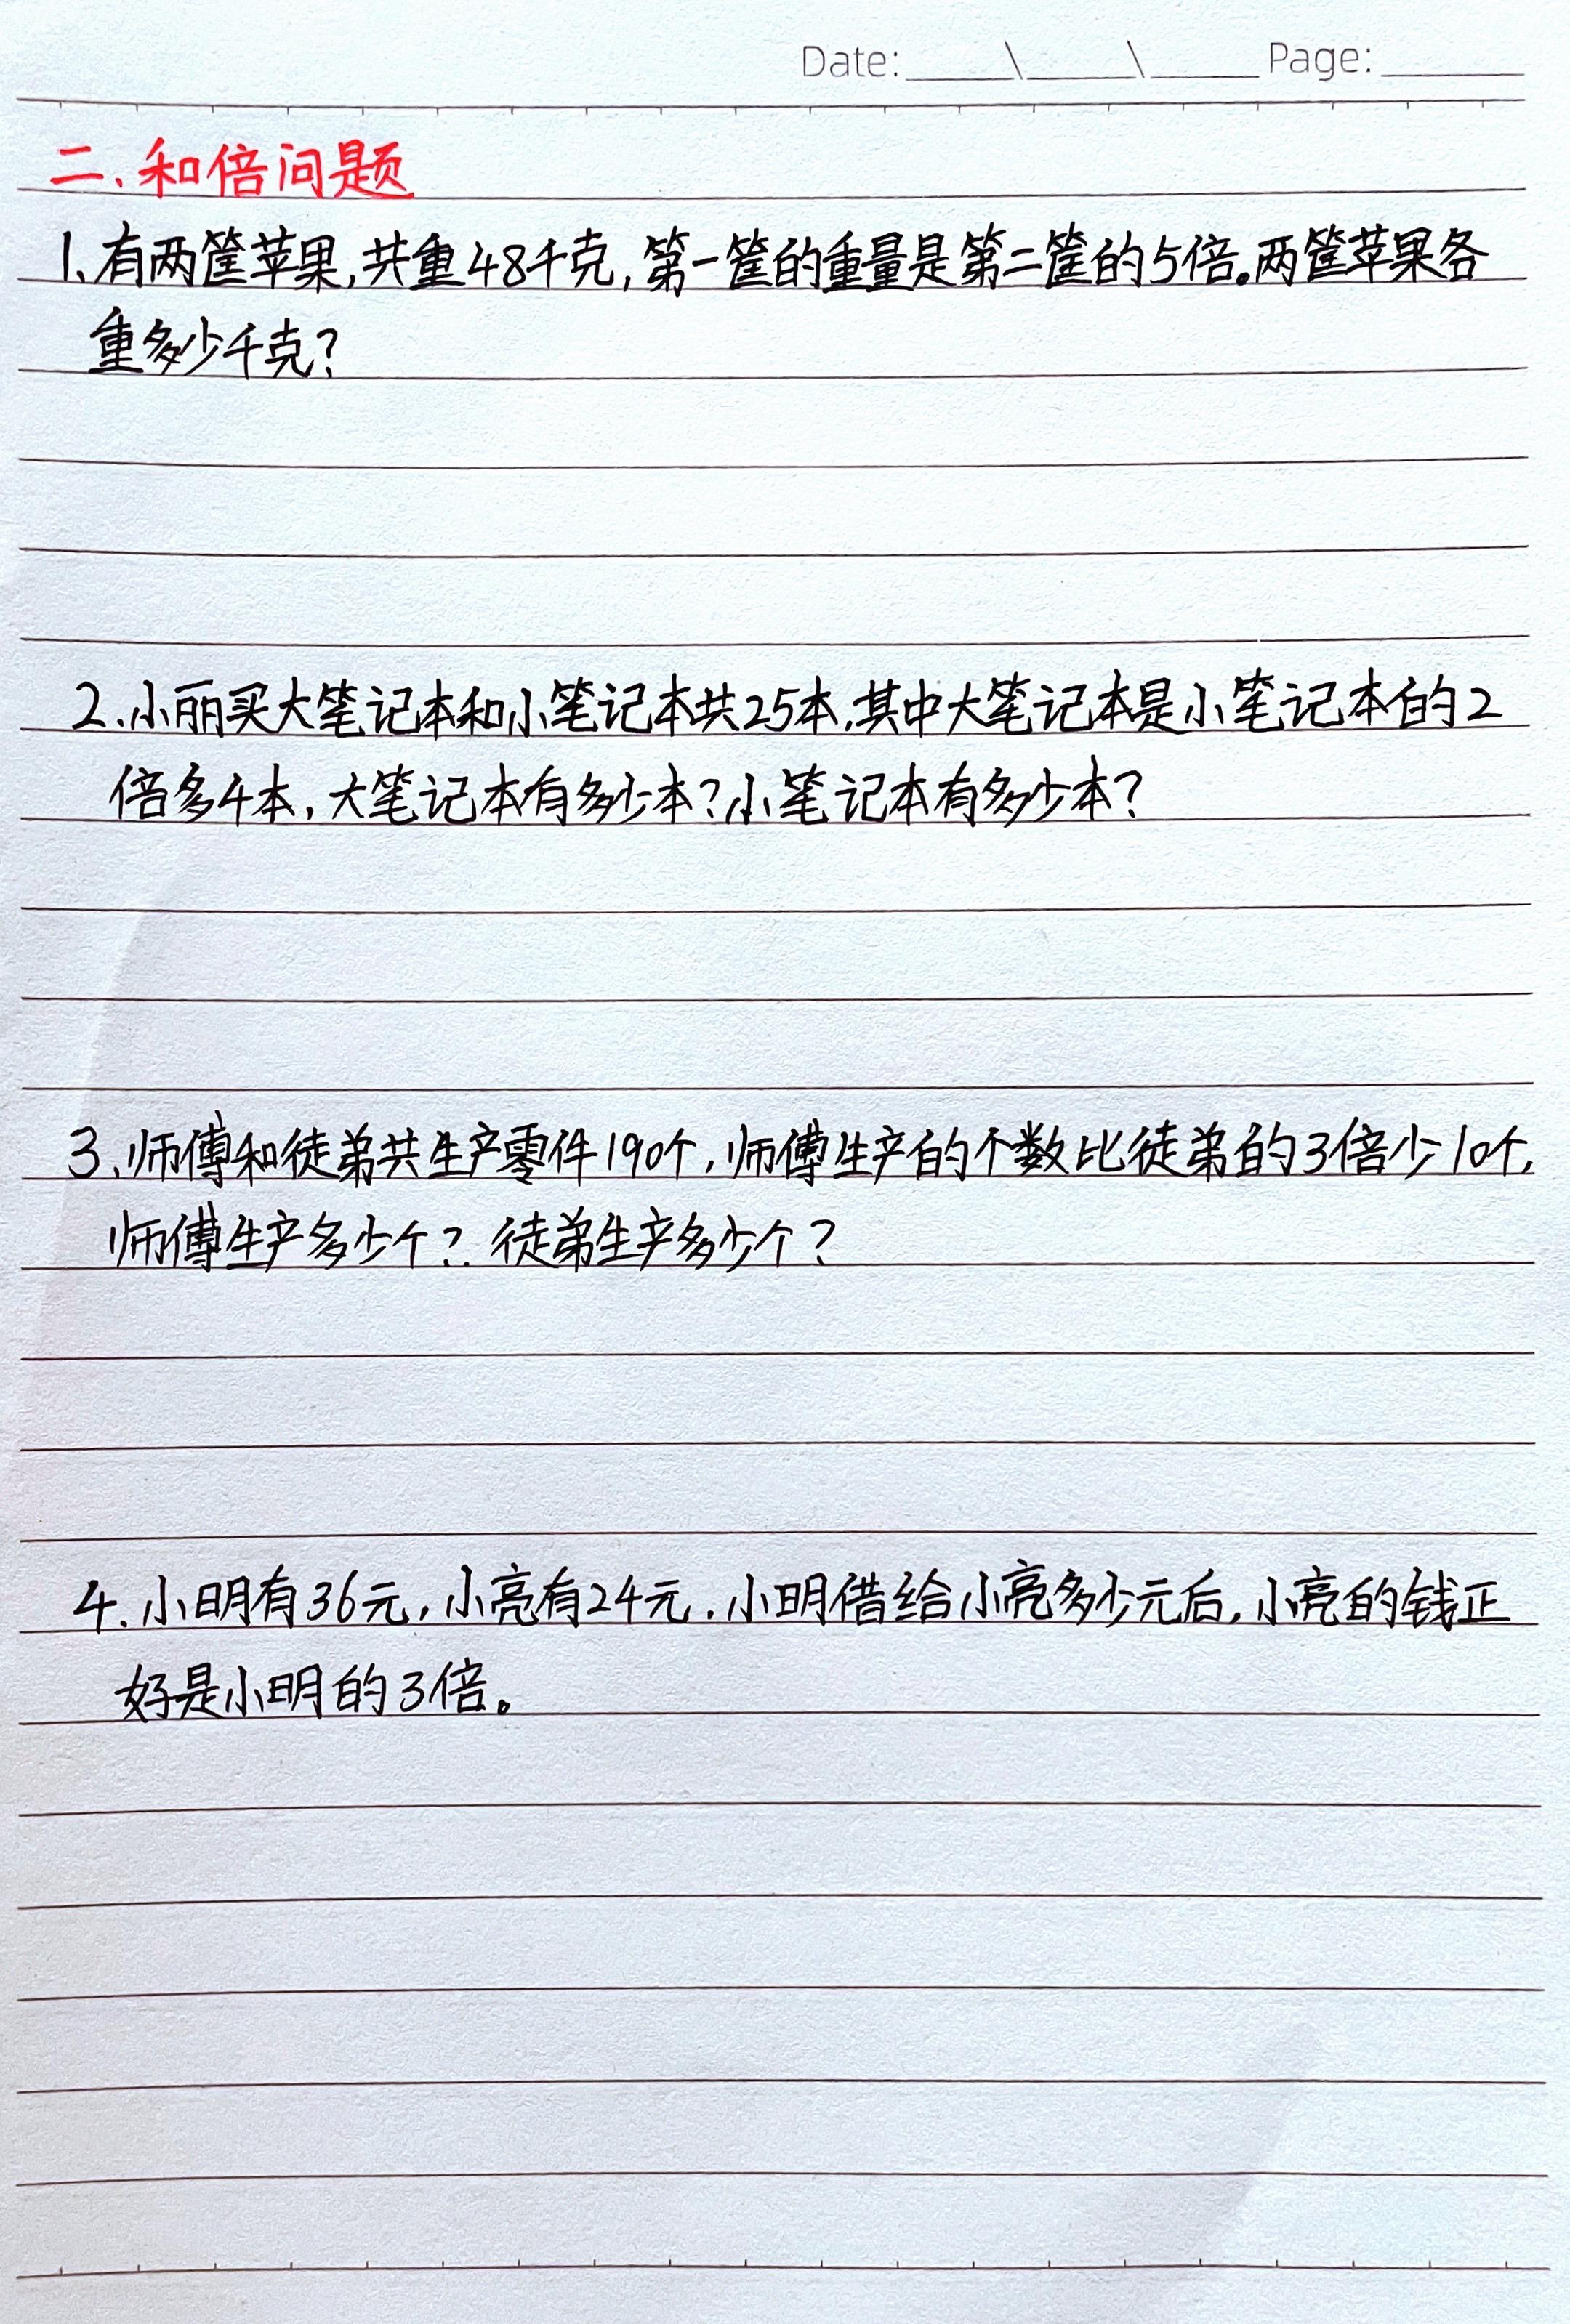 Date: \ \ Page:
二、和倍问题
1、有两筐苹果,共重48千克,第一筐的重量是第二筐的5倍。两筐苹果各
重多少千克?
2、小丽买大笔记本和小笔记本共25本,其中大笔记本是小笔记本的2
倍多4本,大笔记本有多少本?小笔记本有多少本?
3、师傅和徒弟共生产零件190个,师傅生产的个数比徒弟的3倍少10个,
师傅生产多少个?徒弟生产多少个?
4.小明有36元,小亮有24元.小明借给小亮多少元后,小亮的钱正
好是小明的3倍。